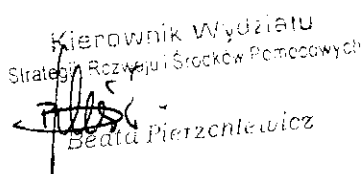 Kierownik Wydziału
Strategii Rozwoju i Środków Pomocowych
Beata Pierzchlewicz